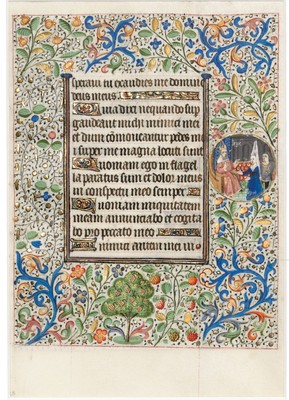 speravi tu exaudies me domine
deus meus
Quia dixi nequando sup
gaudeant michi inimici mei
et dum comoveantur pedes me
i super me magna locuti sunt
Quoniam ego in flagel
la paratus sum et dolor meus
in conspectu meo semper
Quoniam iniquitatem
meam annunciabo et cogita
bo pro peccato meo
Inimici autem mei vi